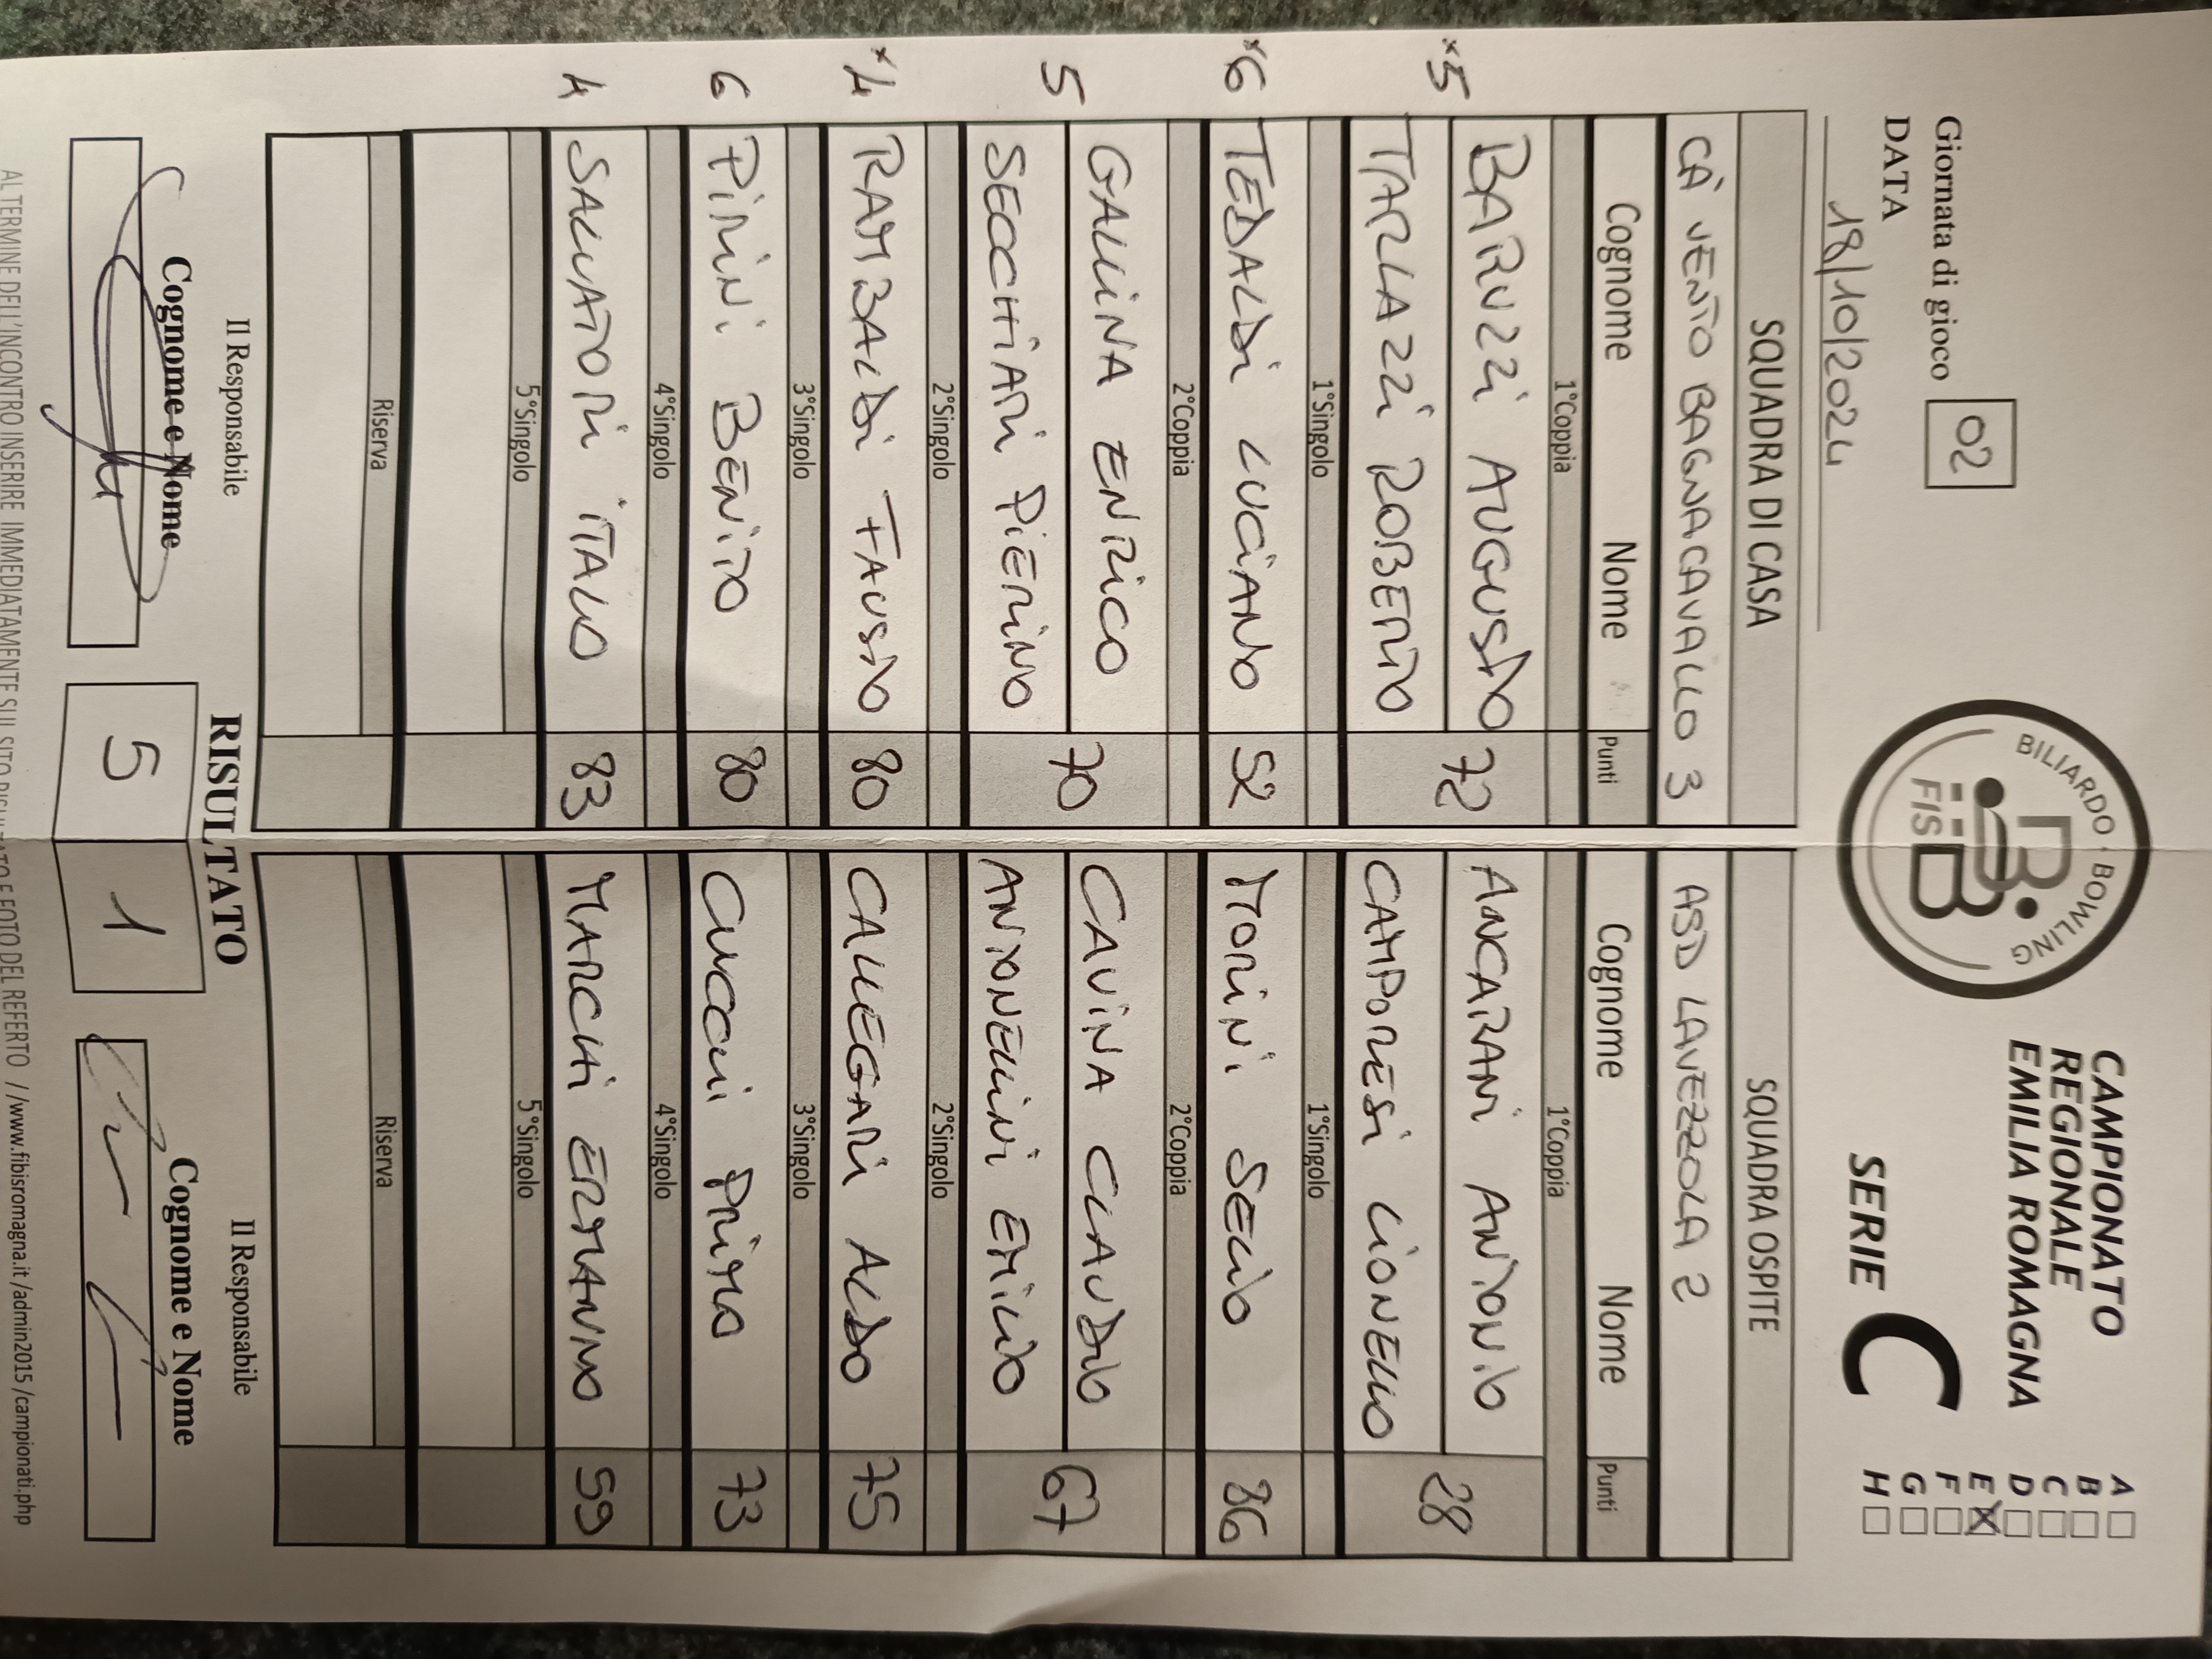 Giornata di gioco 02
DATA
18/10/2024
BILIARDO · BOWLING
FISB
CAMPIONATO
REGIONALE
EMILIA ROMAGNA
SERIE C
A
B
C
D
E X
F
G
H
SQUADRA DI CASA SQUADRA OSPITE
CÀ VENTO BAGNACAVALLO 3 ASD LAVEZZOLA 2
Cognome Nome Punti Cognome Nome Punti
1°Coppia 1°Coppia
x5 BARUZZI AUGUSTO 72 ANCARANI ANTONIO 28
TARLAZZI ROBERTO CAMPORESI LIONELLO
1°Singolo 1°Singolo
x6 TEDALDI LUCIANO 52 MORINI SECIO 86
2°Coppia 2°Coppia
5 GALLINA ENRICO 70 CAVINA CLAUDIO 67
SECCHIARI PIERINO ANTONELLINI EMILIO
2°Singolo 2°Singolo
x4 RAMBALDI FAUSTO 80 CALLEGARI ALDO 75
3°Singolo 3°Singolo
6 PIRINI BENITO 80 CUCCHI PRIMO 73
4°Singolo 4°Singolo
4 SALVATORI ITALO 83 MARCHI ERMANNO 59
5°Singolo 5°Singolo
Riserva Riserva
Il Responsabile RISULTATO Il Responsabile
Cognome e Nome 5 1 Cognome e Nome
AL TERMINE DELL'INCONTRO INSERIRE IMMEDIATAMENTE SUL SITO RISULTATO E FOTO DEL REFERTO //www.fibisromagna.it/admin2015/campionati.php